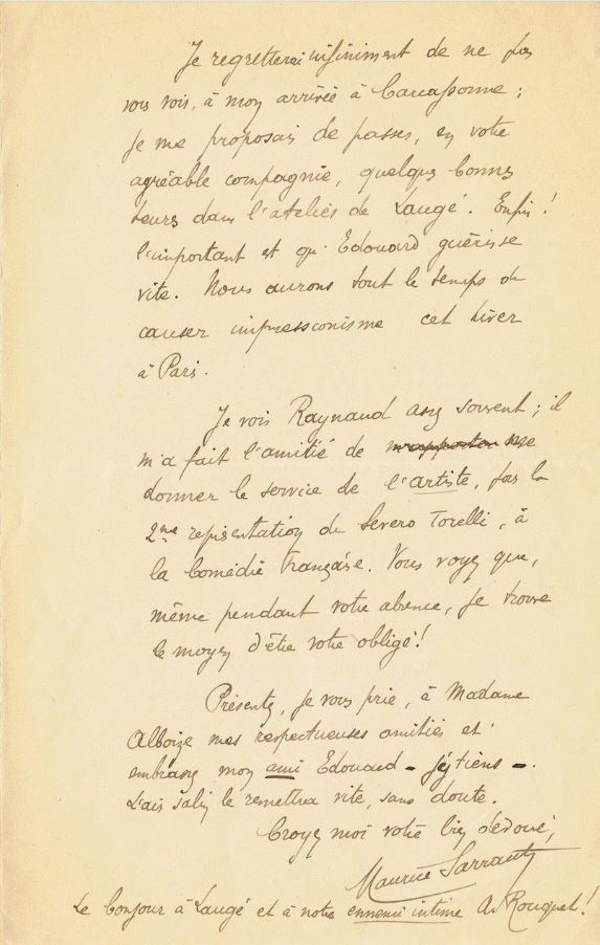 Je regretterai infiniment de ne pas
vous voir, à mon arrivée à Carcassonne ;
je me proposais de passer, en votre
agréable compagnie, quelques bonnes
heures dans l'atelier de Laugé. Enfin !
l'important est qu'Edouard guérisse
vite. Nous aurons tout le temps de
causer impressionisme cet hiver
à Paris.
Je vois Raynaud assez souvent ; il
m'a fait l'amitié de me
donner le service de l'artiste, pour la
2me représentation de Severo Torelli, à
la Comédie Française. Vous voyez que,
même pendant votre absence, je trouve
le moyen d'être votre obligé !
Présentez, je vous prie, à Madame
Alboize mes respectueuses amitiés et
embrassez mon ami Edouard - j'y tiens -.
L'air salin le remettra vite, sans doute.
Croyez moi votre bien dévoué,
Maurice Sarraut
Le bonjour à Laugé et à notre ennemi intime Ach Rouquet !